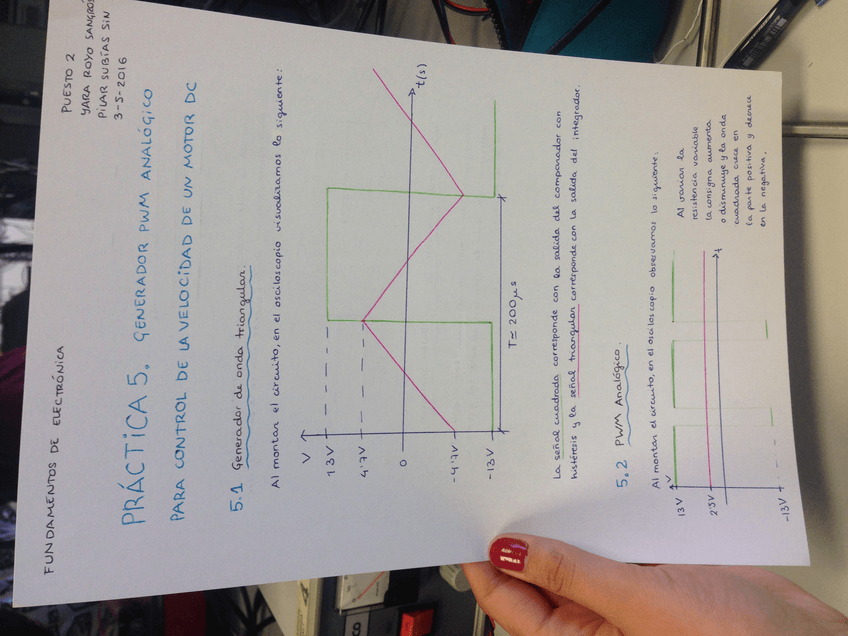 FUNDAMENTOS DE ELECTRÓNICA
PUESTO 2
YARA ROYO SANGRÓS
PILAR SUBÍAS SIN
3-5-2016
PRÁCTICA 5. GENERADOR PWM ANALÓGICO
PARA CONTROL DE LA VELOCIDAD DE UN MOTOR DC
5.1 Generador de onda triangular.
Al montar el circuito, en el osciloscopio visualizamos lo siguiente:
V
13V
4'7V
0
-4'7V
-13V
t(s)
T = 200μs
La señal cuadrada corresponde con la salida del comparador con
histéresis y la señal triangular corresponde con la salida del integrador.
5.2 PWM Analógico.
Al montar el circuito, en el osciloscopio observamos lo siguiente:
V
13V
2'5V
-13V
t
Al variar la
resistencia variable
la consigna aumenta
o disminuye y la onda
cuadrada crece en
la parte positiva y decrece
en la negativa.